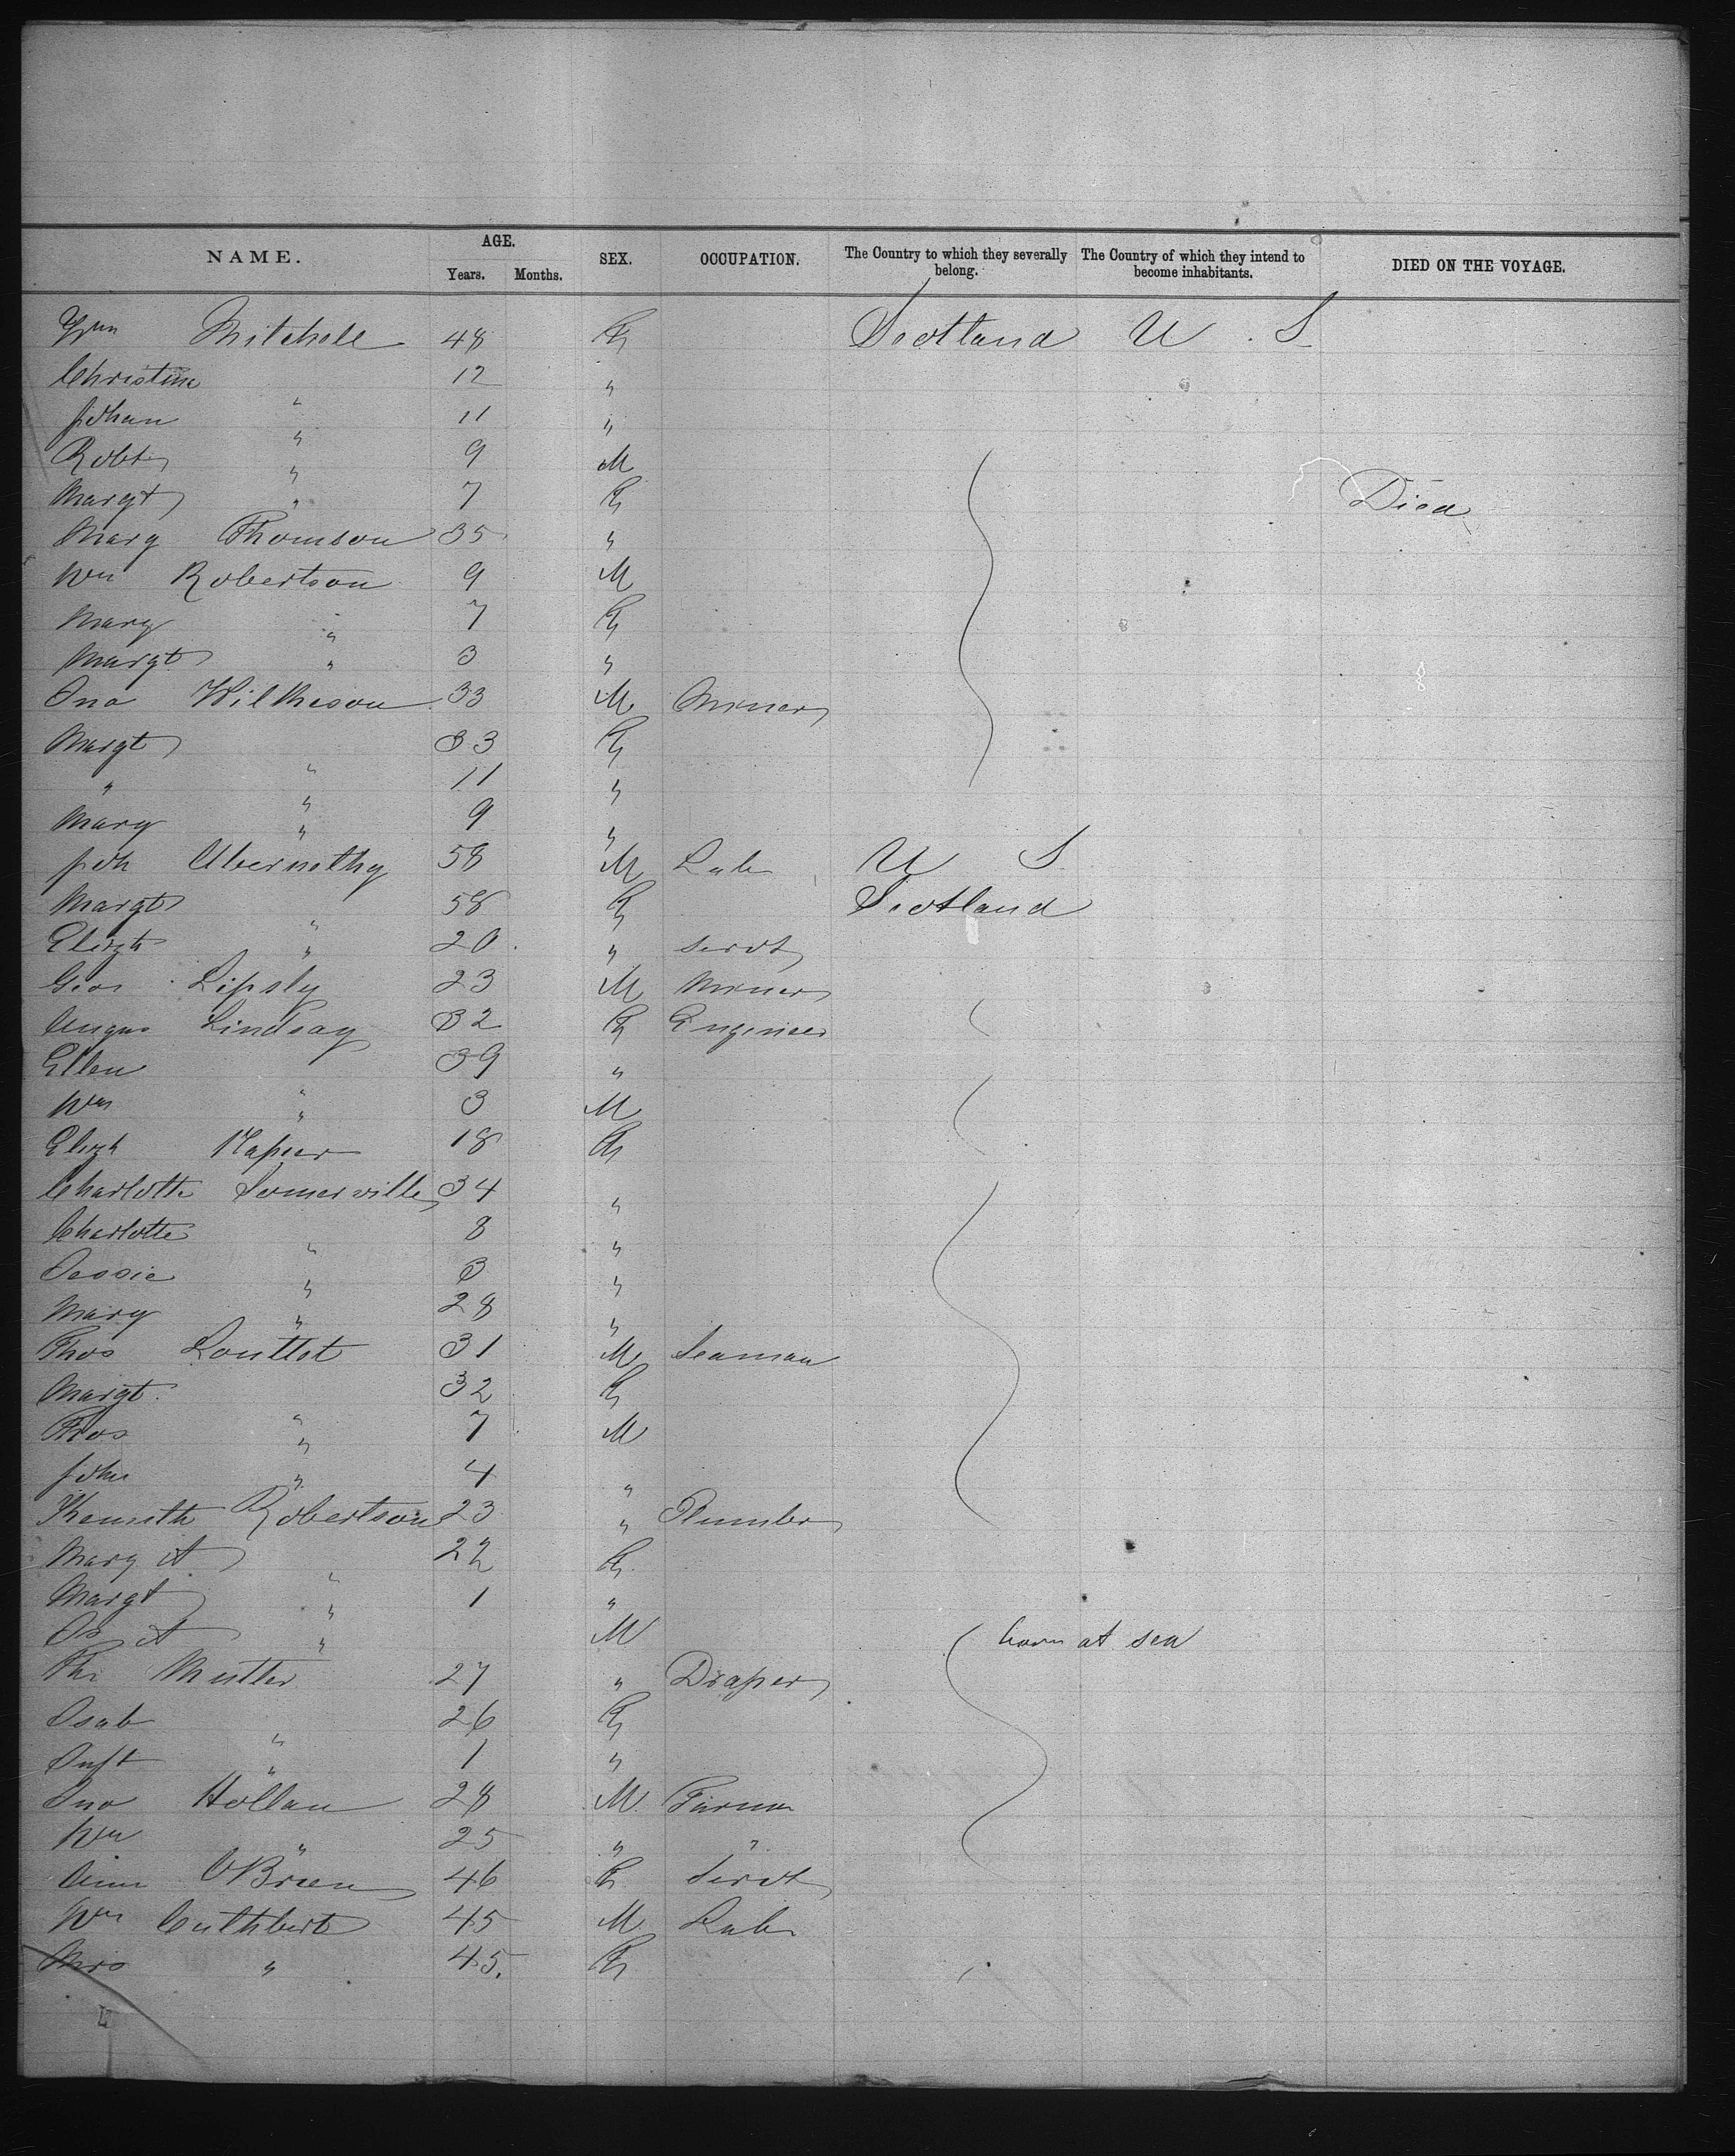 NAME. AGE. SEX. OCCUPATION. The Country to which they severally belong. The Country of which they intend to become inhabitants. DIED ON THE VOYAGE.
Years. Months.
Wm Mitchell 48 F Scotland U . S
Christina " 12 "
Johan " 11 "
Robt " 9 M
Margt " 7 F Died
Mary Thomson 35 "
Wm Robertson 9 M
Mary " 7 F
Margt " 3 "
Jno Wilkieson 33 M Miner
Margt " 33 F
" " 11 "
Mary " 9 "
Joh Abernethy 58 M Lab U S
Margt " 58 F Scotland
Elizth " 20 " Servt
Geo Lipsly 23 M Miner
Angus Lindsay 32 F Engineer
Ellen " 39 "
Wm " 3 M
Elizh Napier 18 F
Charlotte Somerville 34 "
Charlotte " 8 "
Jessie " 3 "
Mary " 28 "
Thos Louttet 31 M Seaman
Margt " 32 F
Thos " 7 M
John " 4 "
Kenneth Robertson 23 " Plumber
Mary A " 22 F
Margt " 1 "
A " M born at sea
Mutter 27 " Draper
Isab " 26 F
Inft " 1 "
Jno Hollan 28 M Farmer
Wm " 25 " "
Ann OBrien 46 F Servt
Wm Cuthbert 45 M Lab
Mrs " 45. F